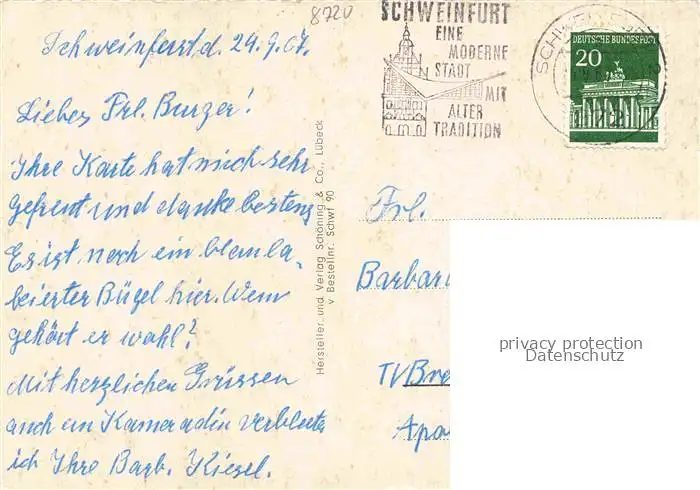 8720
SCHWEINFURT
EINE
MODERNE
STADT
MIT
ALTER
TRADITION
DEUTSCHE BUNDESPOST
20
Schweinfurt d. 24.9.67.
Liebes Frl. Burger!
Ihre Karte hat mich sehr
gefreut und danke bestens
Es ist noch ein
Bügel hier. Wem
gehört er wohl?
Mit herzlichen Grüssen
auch an Kameradin verbleibe
ich Ihre Barb. Kiesel.
Hersteller und Verlag Schöning & Co., Lübeck
v Bestellnr. Schwf 90
Frl.
Barbar
TV Bre
Apo
privacy protection
Datenschutz